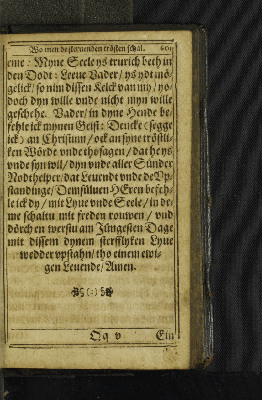 Wo men de steruenden trösten schal. 601
eme: Myne Seele ys trurich beth in
den Dodt: Leeue Vader/ ys ydt mö-
gelick/ so nim dissen Kelck van my/ yo-
doch dyn wille vnde nicht myn wille
geschehe. Vader/ in dyne Hende be-
fehle ick mynen Geist: Dencke (segge
ick) an Christum/ ock an syne tröstli-
ken Wörde vnde thosagen/ dat he ys
vnde syn wil/ dyn vnde aller Sünder
Nodthelper/ dat Leuendt vnde de Vp-
standinge/ Demsüluen HEren befeh-
le ick dy/ mit Lyue vnde Seele/ in de-
me schaltu mit freden rouwen/ vnd
dörch en werstu am Jüngesten Dage
mit dissem dynem sterfflyken Lyue
wedder vpstahn/ tho einem ewi-
gen Leuende/ Amen.
Qq v Ein